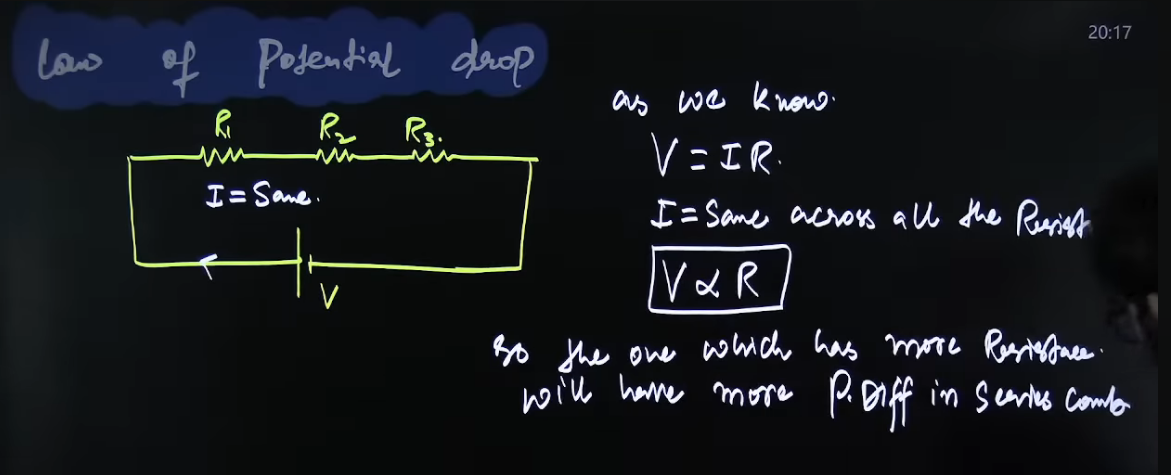 Law of Potential drop
20:17
R₁ R₂ R₃.
I = Same.
V
as we know.
V = IR.
I = Same across all the Resist
V ∝ R
so the one which has more Resistance.
will have more P. Diff in Series Comb